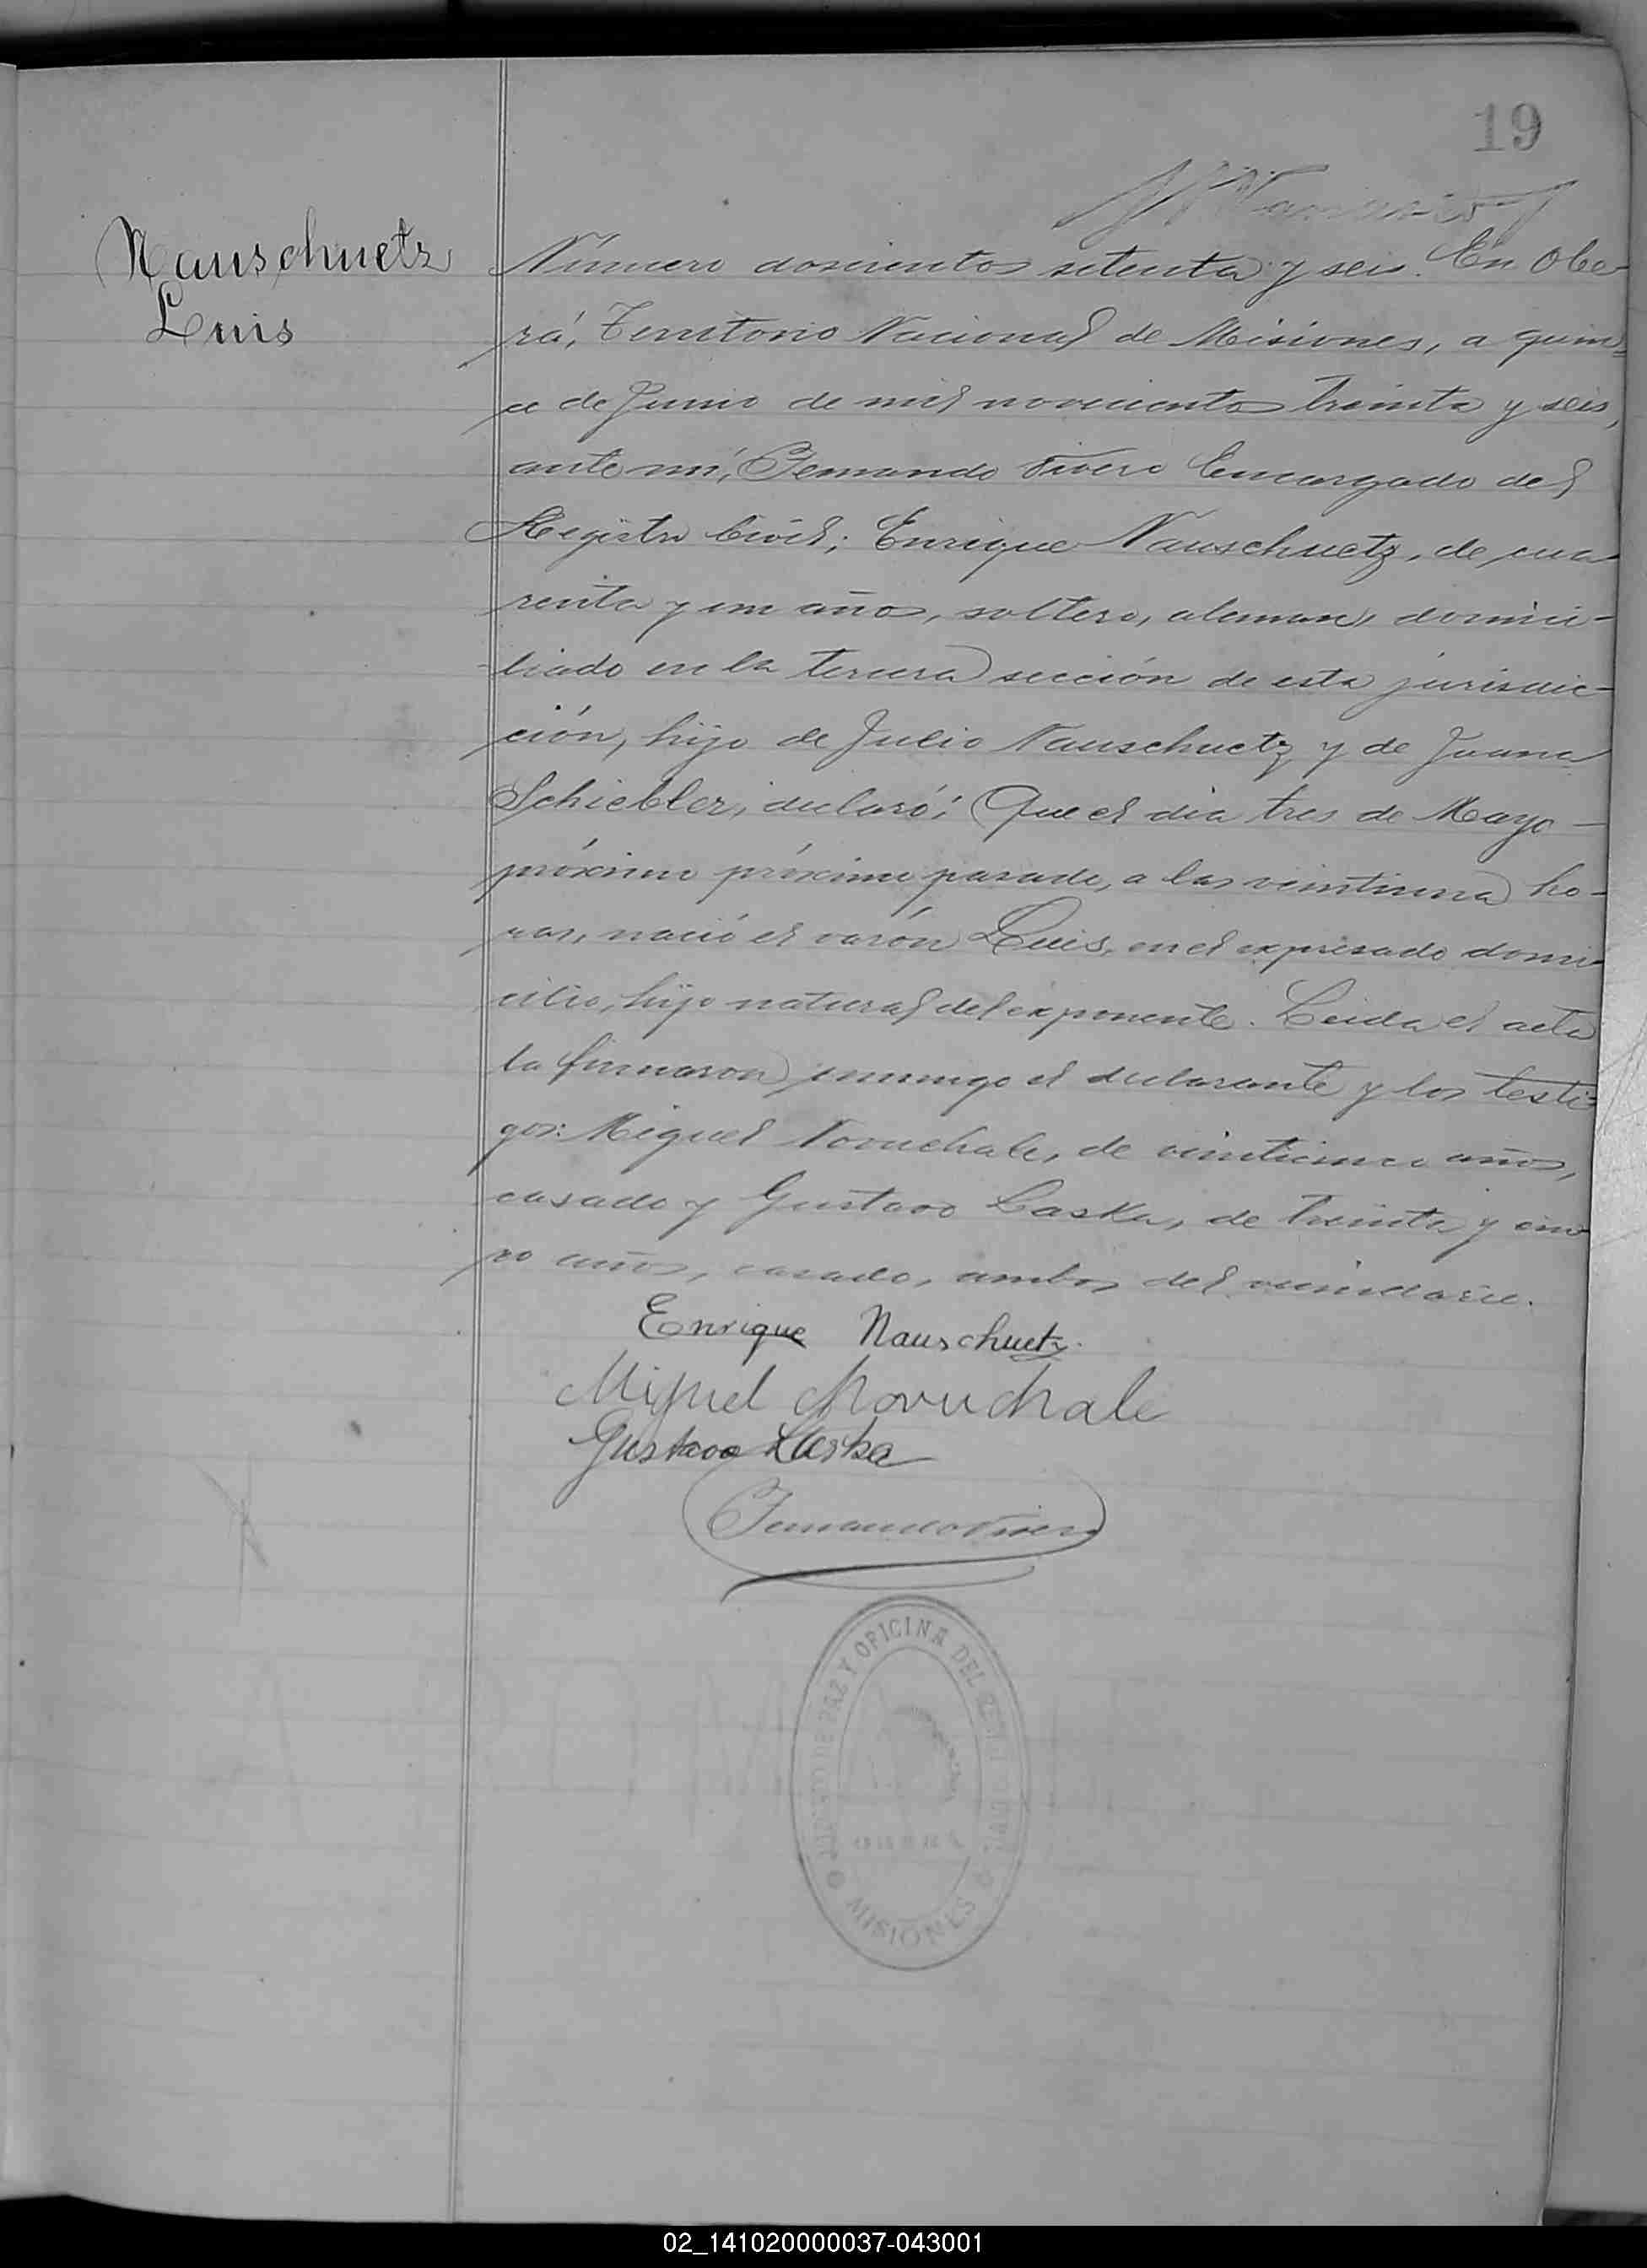 19
Nauschuetz
Luis
Número doscientos setenta y seis. En Obe-
rá, Territorio Nacional de Misiones, a quin-
ce de Junio de mil novecientos treinta y seis,
ante mí, Fernando Vivero Encargado del
Registro Civil; Enrique Nauschuetz, de cua-
renta y un años, soltero, aleman, domici-
liado en la tercera sección de esta jurisdic-
ción, hijo de Julio Nauschuetz y de Juana
Schiebler, declaró: Que el dia tres de Mayo
próximo próximo pasado, a las veintiuna ho-
ras, nació el varón Luis, en el expresado domi-
cilio, hijo natural del exponente. Leida el acta
la firmaron conmigo el declarante y los testi-
gos: Miguel Novuchale, de veinticinco años,
casado y Gustavo Laska, de treinta y cin-
co años, casado, ambos del vecindario.
Enrique Nauschuetz.
Miguel Novuchale
Gustavo Laska
Fernando Vivero
JUZGADO DE PAZ Y OFICINA DEL REGISTRO CIVIL
MISIONES
02_141020000037-043001